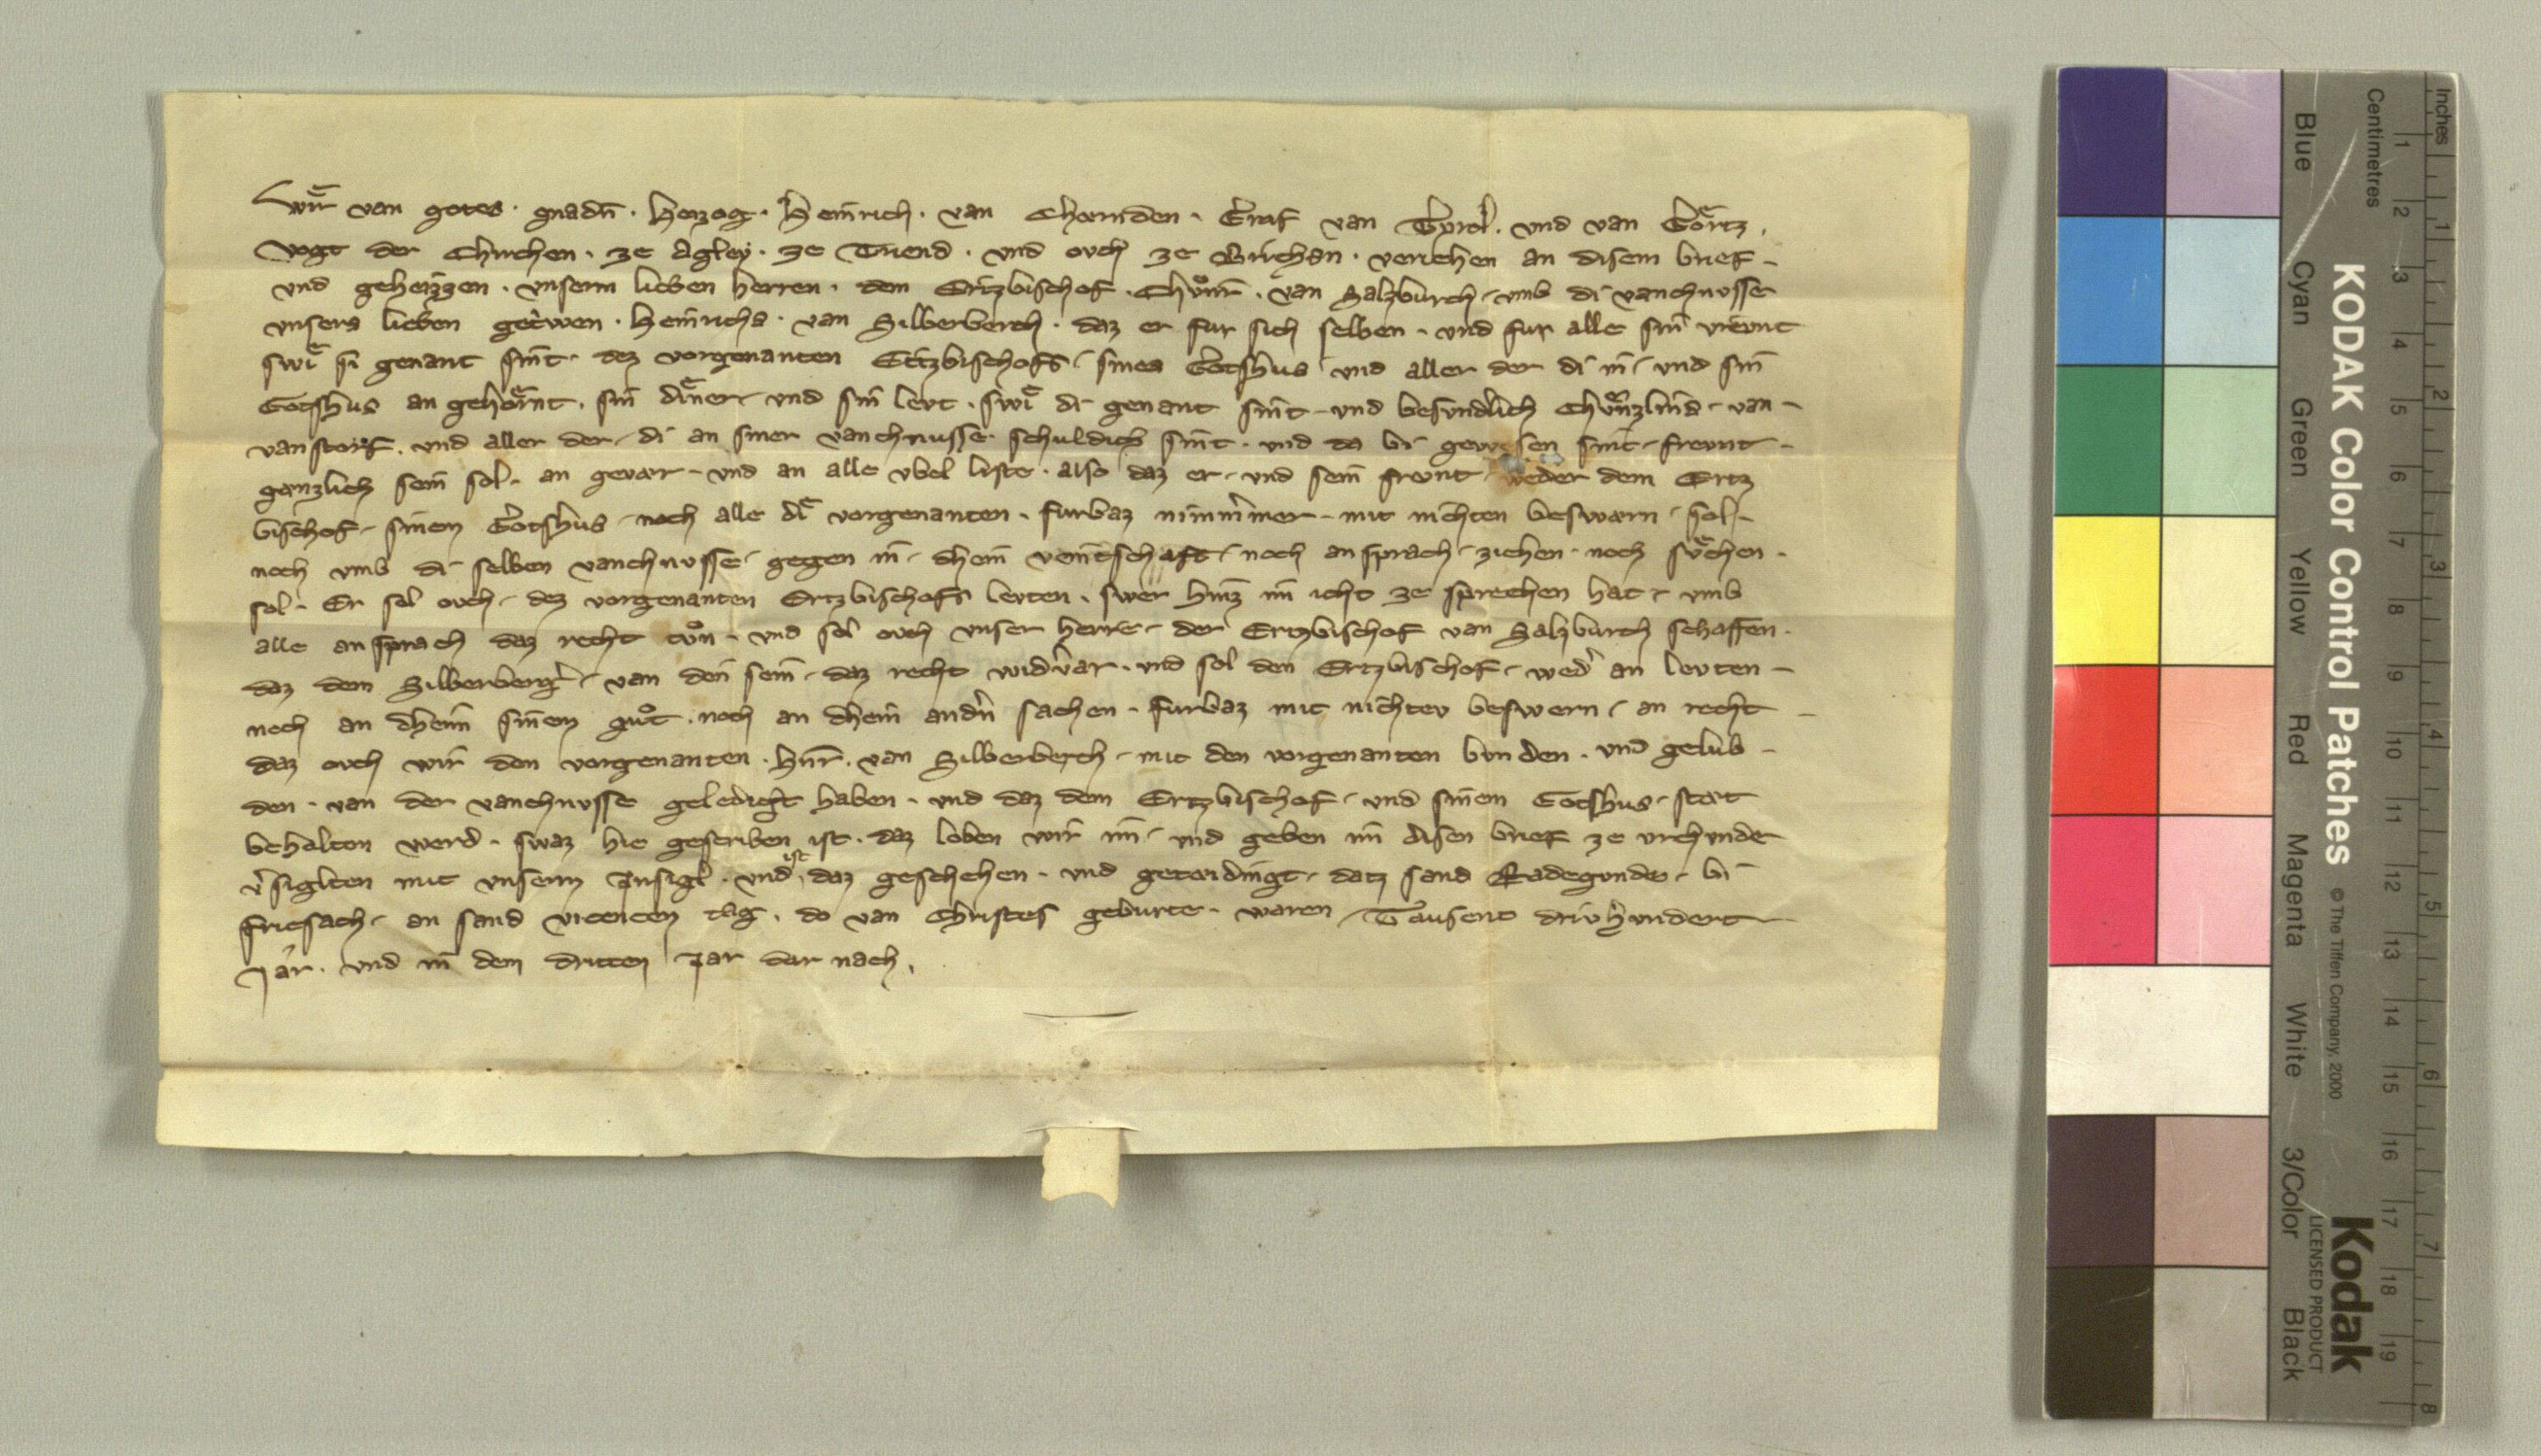 Wiͤr van gotes · gnadn̄ · Herzog · Heinrich · van Chærnden · Graf van Tyrol · vnd van Goͤrtz ·
Vogt der Chirchen · ze Agley · ze Trient · vnd ovch ze Brichsn · veriehen an disem brief –
vnd geheizzen · vnserm lieben herren · dem Ertzbischof · Chvͦnr̄ · van Salzburch – vmb di vanchnvsse
vnsers lieben getrwen · Heinrichs · van Silberberch · daz er fur sich selben · vnd fur alle sin vrevnt
swiͤ si genant sint · dez vorgenanten Ertzbischofs – sines Gotshus – vnd aller der di in – vnd sin
Gotshus an gehoͤrnt · sin diͤner – vnd sin levt · swiͤ di genant sint – vnd besvndlich Chvͤnzlins – van –
vanstorf · vnd aller der – di an siner vanchnusse schuldich sint · vnd da bi gewesen sint – frevnt –
gænzlich sein sol – an gevær – vnd an alle vbel liste · also daz er – vnd sein frevnt – weder dem Ertz
bischof – sinem Gotshus – noch alle diͤ vorgenanten – furbaz nimmer – mit nichten beswærn – sol –
noch vmb di selben vanchnvsse – gegen in – dhein veintschaft – noch ansprach – ziehen · noch svͤchen –
sol – Er sol ovch – dez vorgenanten Ertzbischofs levten · swer hinz im icht ze sprechen hat – vmb
alle ansprach daz recht tvͦn – vnd sol ovch vnser herre – der Ertzbischof van Salzburch schaffen –
daz dem Silberberger – van den sein – daz recht widervar · vnd sol den Ertzbischof – weder an levten –
noch an dheim sinem gvͦt · noch an dhein andern sachen – furbaz mit nichtev beswern – an recht –
daz ovch wir den vorgenanten · Hnr̄ · van Silberberch – mit den vorgenanten bvnden · vnd gelub –
den · van der vanchnvsse geledigt haben · vnd daz dem Ertzbischof – vnd sinem Gotshus – stæt
behalten werd · swaz hie gescriben ist · daz loben wir im – vnd geben im disen brief ze vrchvnde
v͛siglten mit vnserm Insigl · vnd ist daz geschehen · vnd getaidingt – datz sand Radegvnde – bi
Friesach – an sand vicencen tag · do van Christes geburte – waren – Tausent driv hvndert –
Jar · vnd in dem dritten Jar dar nach ·
Inches
Centimetres
KODAK Color Control Patches © The Tiffen Company, 2000
Kodak
LICENSED PRODUCT
Blue Cyan Green Yellow Red Magenta White 3/Color Black
1 2 3 4 5 6 7 8 9 10 11 12 13 14 15 16 17 18 19
1 2 3 4 5 6 7 8